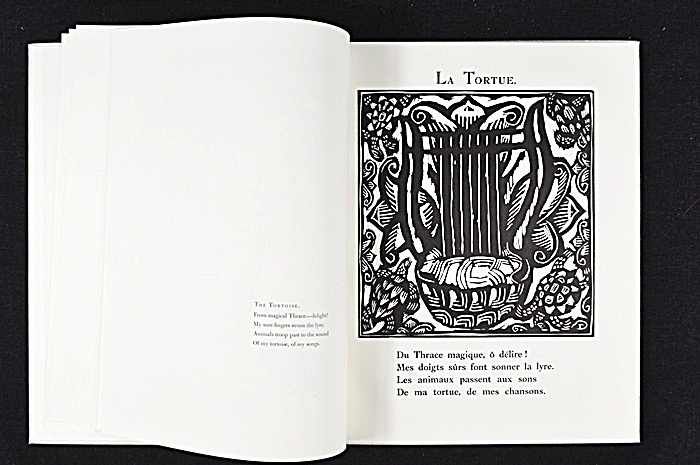 The Tortoise.
From magical Thrace—delight!
My sure fingers strum the lyre.
Animals troop past to the sound
Of my tortoise, of my songs.
La Tortue.
Du Thrace magique, ô délire !
Mes doigts sûrs font sonner la lyre.
Les animaux passent aux sons
De ma tortue, de mes chansons.